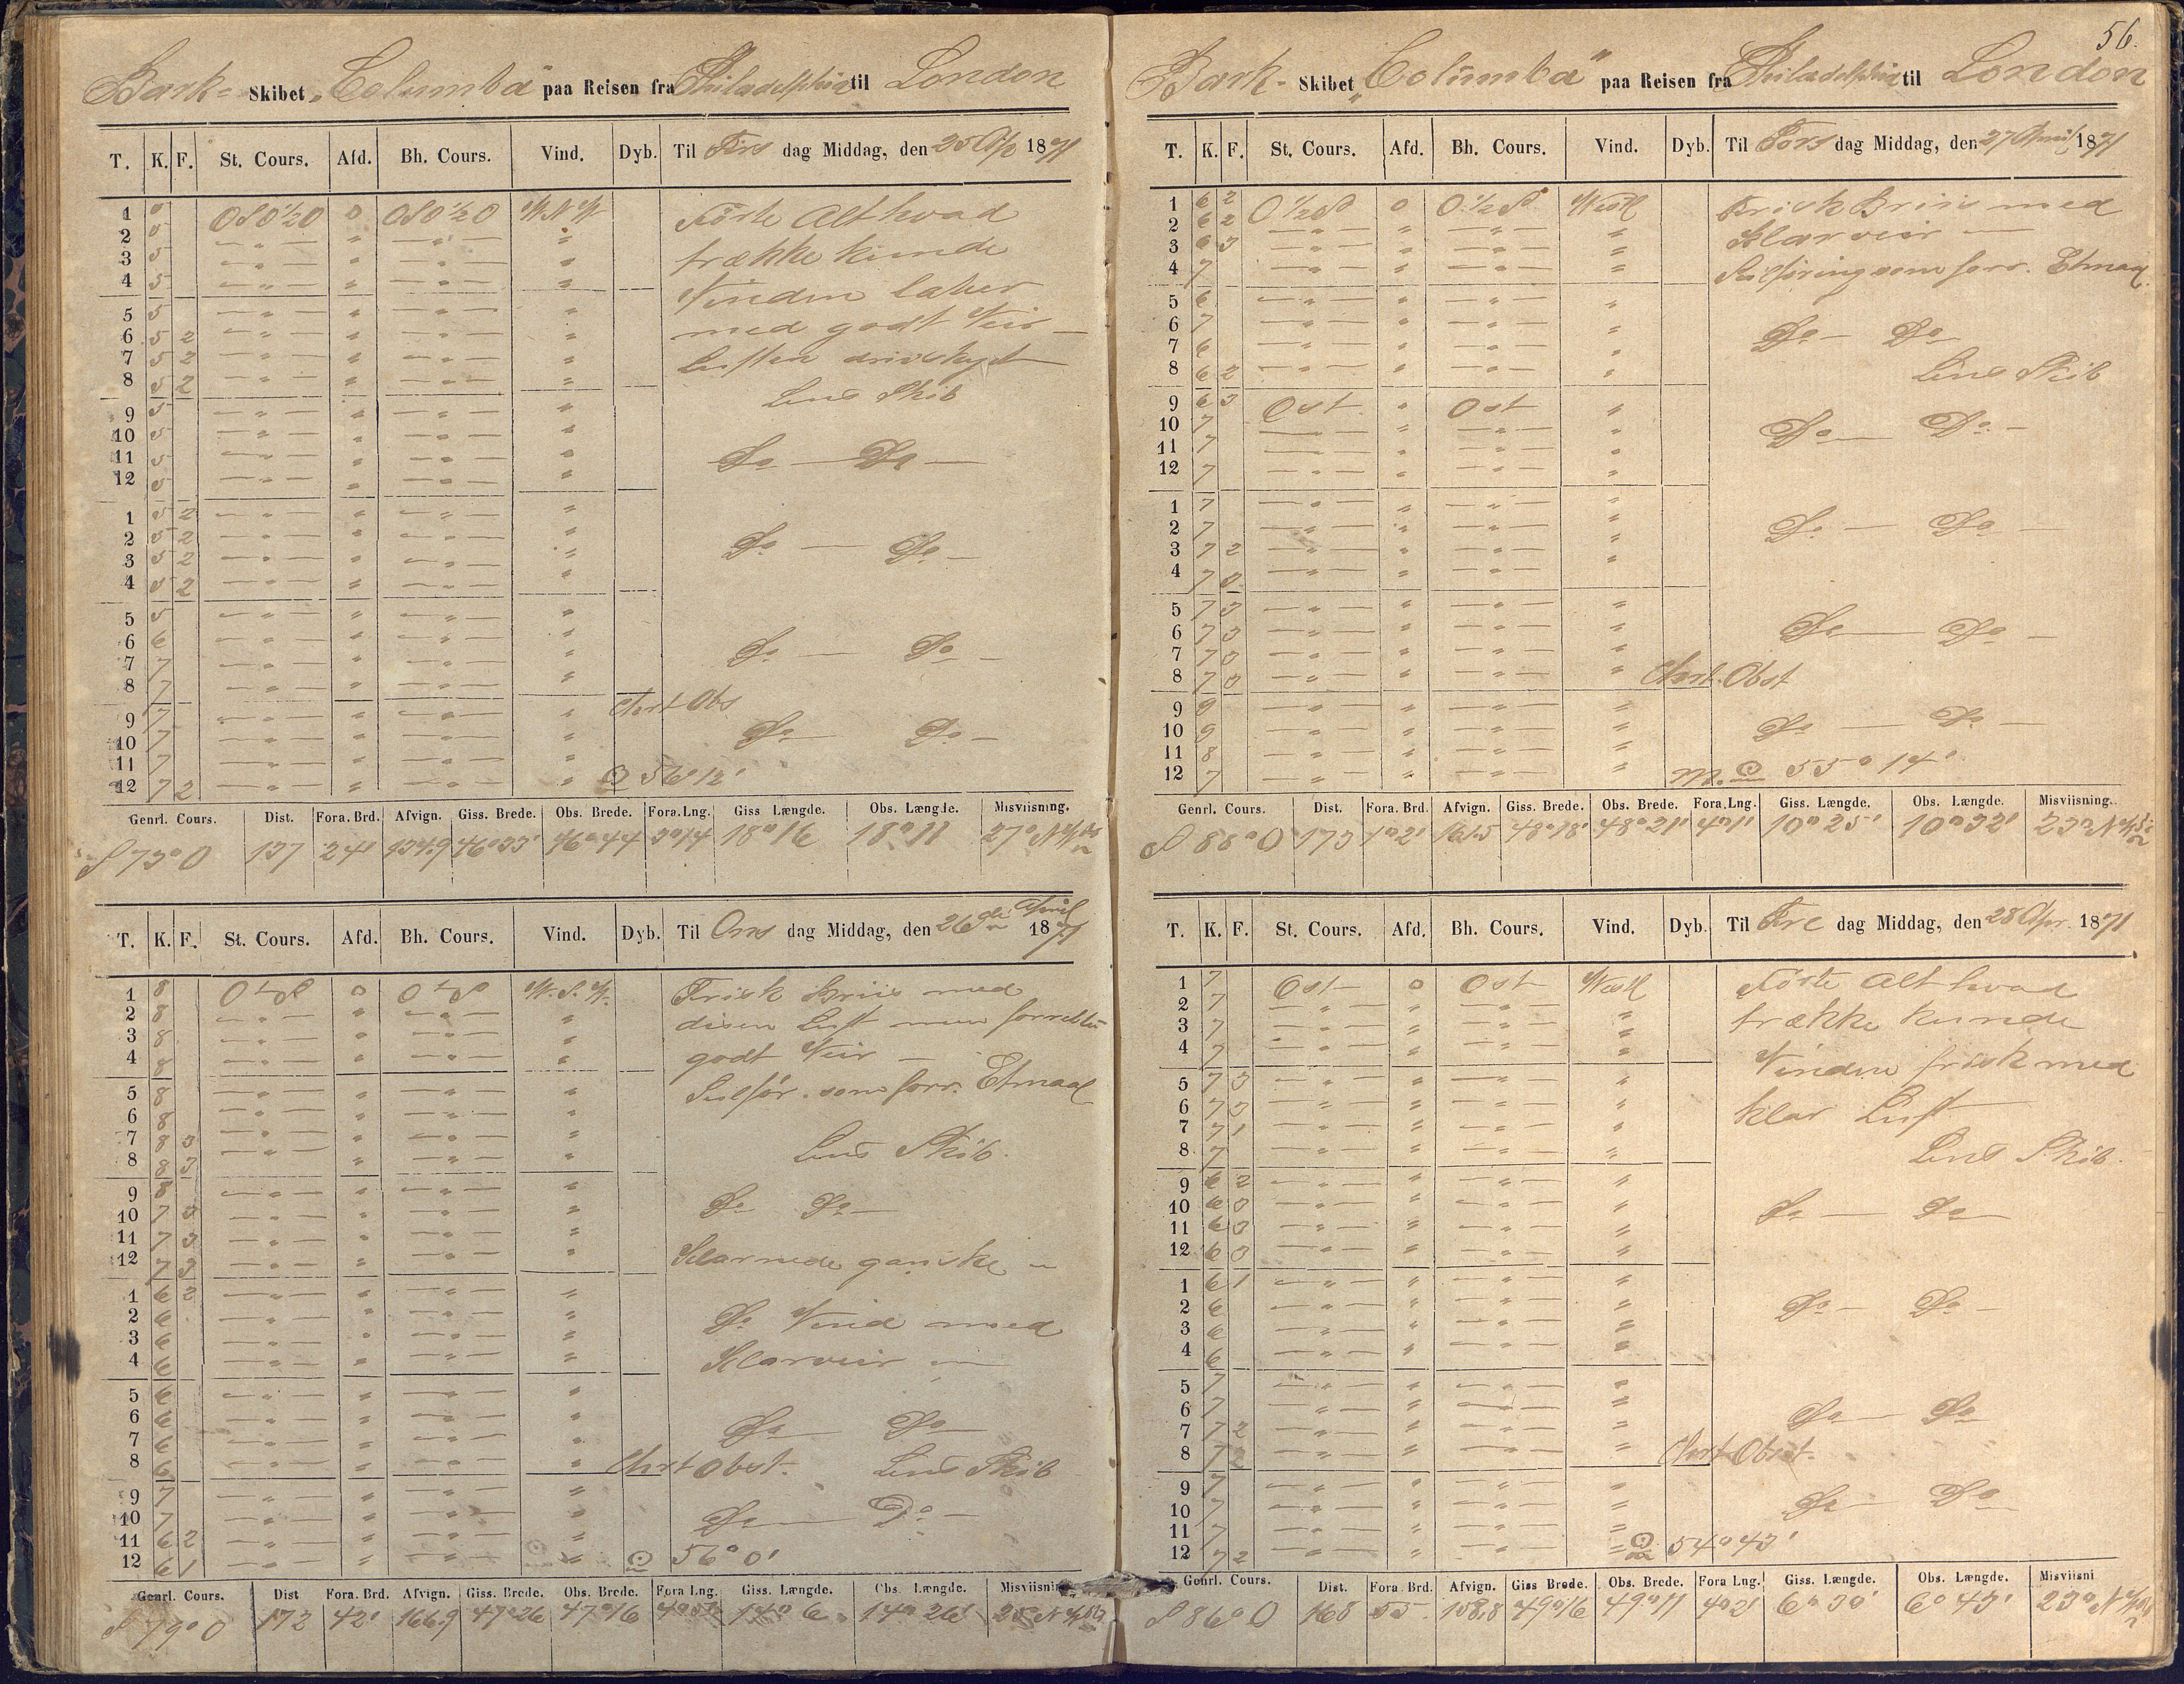 Bark- Skibet „Columba" paa Reisen fra Philadelphia til London
T. K. F. St. Cours. Afd. Bh. Cours. Vind. Dyb. Til Tirs dag Middag, den 25 Apl 1871
1 5 OSO½O 0 OSO½O W.N.W Förte Alt hvad
2 5 — " — " — " — "
3 5 — " — " — " — " trække kunde
4 5 — " — " — " — " Vinden laber
5 5 — " — " — " — "
6 5 2 — " — " — " — " med godt Veir —
7 5 2 — " — " — " — " Luften driv skyet
8 5 2 — " — " — " — " Lens Skib
9 5 — " — " — " — "
10 5 — " — " — " — "
11 5 — " — " — " — " Do — Do —
12 5 — " — " — " — "
1 5 2 — " — " — " — "
2 5 2 — " — " — " — " Do — Do —
3 5 2 — " — " — " — "
4 5 2 — " — " — " — "
5 5 — " — " — " — "
6 6 — " — " — " — " Do — Do —
7 7 — " — " — " — "
8 7 — " — " — " — "
9 7 — " — " — " — " Chrt Obs
10 7 — " — " — " — " Do — Do —
11 7 — " — " — " — "
12 7 2 — " — " — " — " ⊙ 56° 12'
Genrl. Cours. Dist. Fora. Brd. Afvign. Giss. Brede. Obs. Brede. Fora. Lng. Giss Længde. Obs. Længde. Misviisning.
S 73° O 137 24' 134.9 46° 33' 46° 44 3° 14 18° 16 18° 11 27° N.W.
T. K. F. St. Cours. Afd. Bh. Cours. Vind. Dyb. Til Ons dag Middag, den 26de April 1871
1 8 0 W.S.W. Frisk Briis med
2 8 — " — " — " — " disen Luft men
3 8 — " — " — " — "
4 8 — " — " — " — " godt Veir —
5 8 — " — " — " — " Seilför. som forr. Etmaal
6 8 — " — " — " — "
7 8 3 — " — " — " — "
8 8 3 — " — " — " — " Lens Skib.
9 8 — " — " — " — "
10 7 3 — " — " — " — " Do Do —
11 7 3 — " — " — " — "
12 7 3 — " — " — " — " Klarnede ganske
1 6 2 — " — " — " — "
2 6 — " — " — " — " Do Vind med
3 6 — " — " — " — "
4 6 — " — " — " — " Klarveir
5 6 — " — " — " — "
6 6 — " — " — " — " Do Do —
7 6 — " — " — " — "
8 6 — " — " — " — " Chrt Obst. Lens Skib
9 7 — " — " — " — "
10 7 — " — " — " — " Do — Do —
11 6 2 — " — " — " — "
12 6 1 — " — " — " — " ⊙ 56° 0'
Genrl. Cours. Dist Fora. Brd. Afvign. Giss. Brede. Obs. Brede. Fora Lng. Giss. Længde. Obs. Længde. Misviisni
S 79° O 172 42' 166.9 47° 26 47° 16 14° 6 14° 26' 25° N.W.
56.
Bark- Skibet „Columba" paa Reisen fra Philadelphia til London
T. K. F. St. Cours. Afd. Bh. Cours. Vind. Dyb. Til Tors dag Middag, den 27 April 1871
1 6 2 O ½ S 0 O ½ S Westl Frisk Briis med
2 6 2 — " — " — " — " Klarveir —
3 6 3 — " — " — " — "
4 7 — " — " — " — " Seilföring som forr. Etmaal.
5 6 — " — " — " — "
6 7 — " — " — " — " Do — Do
7 6 — " — " — " — "
8 6 2 — " — " — " — " Lens Skib
9 6 3 Ost " Ost "
10 7 — " — " — " — " Do — Do —
11 7 — " — " — " — "
12 7 — " — " — " — "
1 7 — " — " — " — "
2 7 — " — " — " — " Do — Do —
3 7 2 — " — " — " — "
4 7 3 — " — " — " — "
5 7 3 — " — " — " — "
6 7 3 — " — " — " — " Do — Do —
7 7 3 — " — " — " — "
8 7 3 — " — " — " — " Chrt. Obst
9 9 — " — " — " — "
10 9 — " — " — " — " Do — Do —
11 8 — " — " — " — "
12 7 — " — " — " — " M. ⊙ 55° 14'
Genrl. Cours. Dist. Fora. Brd. Afvign. Giss. Brede. Obs. Brede. Fora. Lng. Giss. Længde. Obs. Længde. Misviisning.
S 88° O 173 1° 2' 161.5 48° 18' 48° 21' 4° 1' 10° 25' 10° 32' 23° N.W.
T. K. F. St. Cours. Afd. Bh. Cours. Vind. Dyb. Til Fre dag Middag, den 28 Apr. 1871
1 7 Ost 0 Ost Westl Förte Alt hvad
2 7 — " — " — " — "
3 7 — " — " — " — " trække kunde
4 7 — " — " — " — " Vinden frisk med
5 7 3 — " — " — " — "
6 7 3 — " — " — " — " klar Luft
7 7 1 — " — " — " — "
8 7 — " — " — " — " Lens Skib.
9 6 2 — " — " — " — "
10 6 3 — " — " — " — " Do — Do —
11 6 3 — " — " — " — "
12 6 3 — " — " — " — "
1 6 1 — " — " — " — "
2 6 — " — " — " — " Do — Do —
3 6 — " — " — " — "
4 6 — " — " — " — "
5 7 — " — " — " — "
6 7 — " — " — " — " Do — Do
7 7 2 — " — " — " — "
8 7 2 — " — " — " — " Chrt Obst.
9 7 — " — " — " — "
10 7 — " — " — " — " Do — Do
11 7 — " — " — " — "
12 7 2 — " — " — " — " ⊙ 54° 43'
Genrl. Cours. Dist. Fora Brd. Afvign. Giss Brede. Obs. Brede. Fora Lng. Giss. Længde. Obs. Længde. Misviisni
S 86° O 168 55 158.8 49° 16 49° 11 4° 2' 6° 30' 6° 43' 23° N.W.